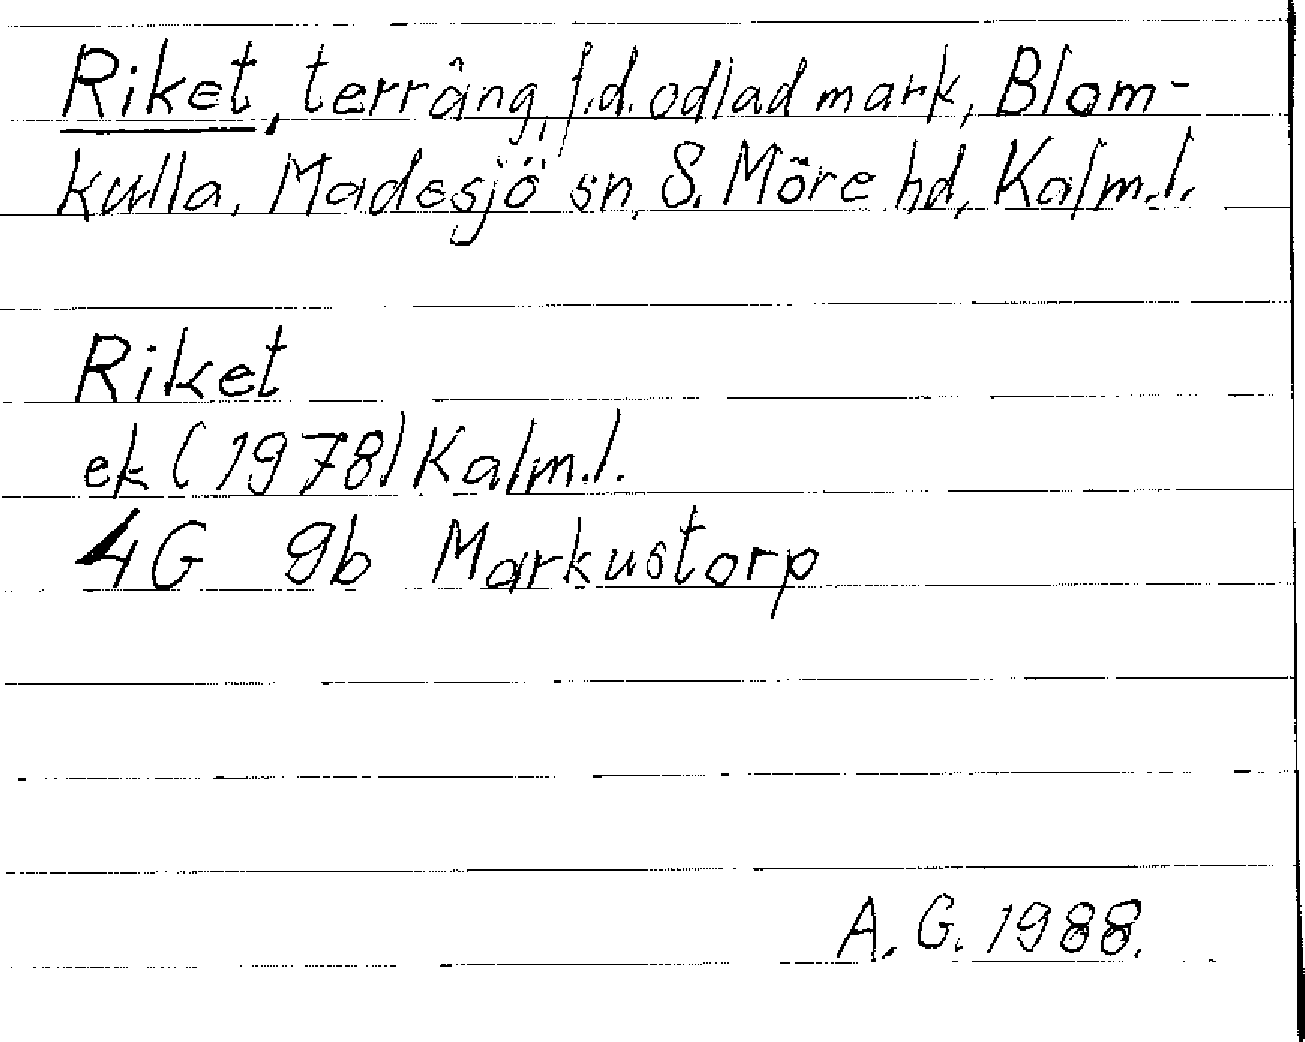 Riket, terräng, f.d. odlad mark, Blom-
kulla, Madesjö sn, S. Möre hd, Kalm.l.
Riket
ek (1978) Kalm.l.
4G 9b Markustorp
A. G. 1988.